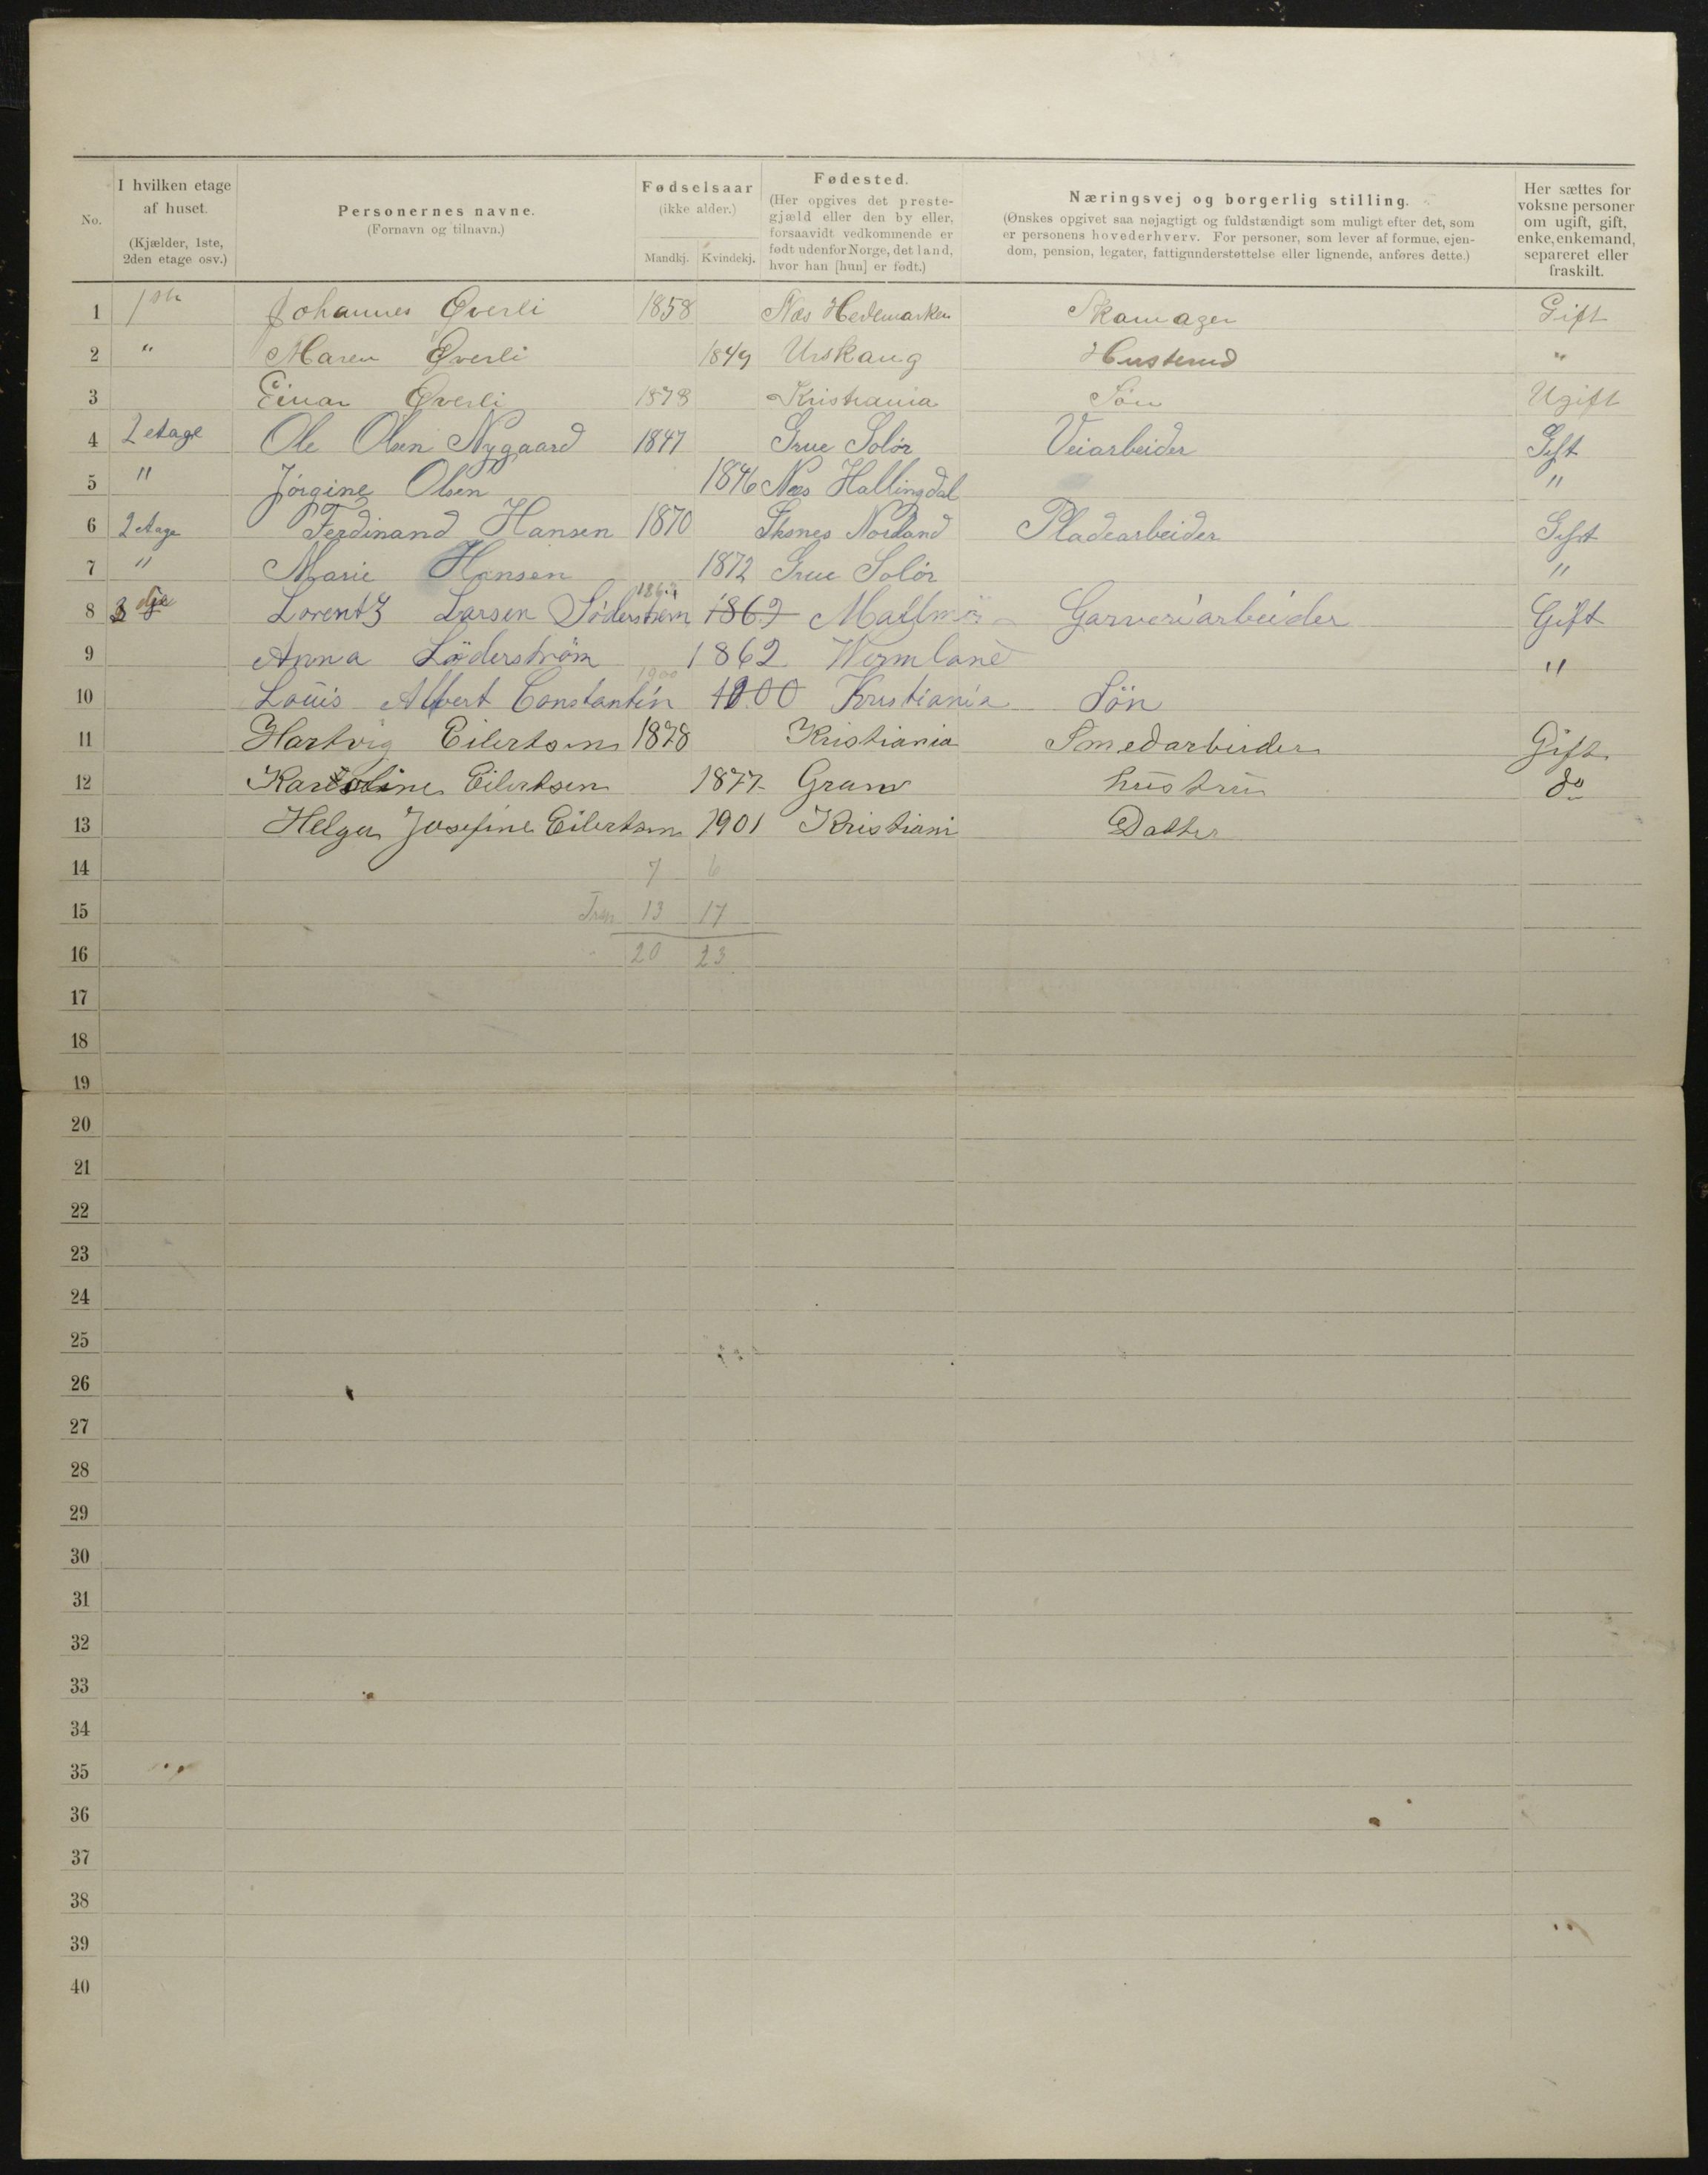 No. | I hvilken etage af huset. (Kjælder, 1ste, 2den etage osv.) | Personernes navne. (Fornavn og tilnavn.) | Fødselsaar (ikke alder.) Mandkj. Kvindekj. | Fødested. (Her opgives det prestegjæld eller den by eller, forsaavidt vedkommende er født udenfor Norge, det land, hvor han [hun] er født.) | Næringsvej og borgerlig stilling. (Ønskes opgivet saa nøjagtigt og fuldstændigt som muligt efter det, som er personens hovederhverv. For personer, som lever af formue, ejendom, pension, legater, fattigunderstøttelse eller lignende, anføres dette.) | Her sættes for voksne personer om ugift, gift, enke, enkemand, separeret eller fraskilt.
1 1ste Johannes Øverli 1858 Næs Hedemarken Skomager Gift
2 " Maren Øverli 1849 Urskaug Husterud "
3 Einar Øverli 1878 Kristiania Søn Ugift
4 2 etage Ole Olsen Nygaard 1847 Grue Solør Veiarbeider Gift
5 " Jørgine Olsen 1846 Næs Hallingdal "
6 2 etage Ferdinand Hansen 1870 Nordland Pladearbeider Gift
7 " Marie Hansen 1872 Grue Solör "
8 3 dje Lorentz Larsen Söderstrøm 1869 Mallmö Garveriarbeider Gift
9 Anna Söderström 1862 Wermland "
1900
10 Louis Albert Constantin 1900 Kristiania Sön
11 Hartvig Eilertsen 1878 Kristiania Smedarbeider Gift
12 Karoline Eilertsen 1877 Gran hustru do
13 Helga Josefine Eilertsen 1901 Kristiani Datter
14 7 6
15 13 17
16 20 23
17
18
19
20
21
22
23
24
25
26
27
28
29
30
31
32
33
34
35
36
37
38
39
40